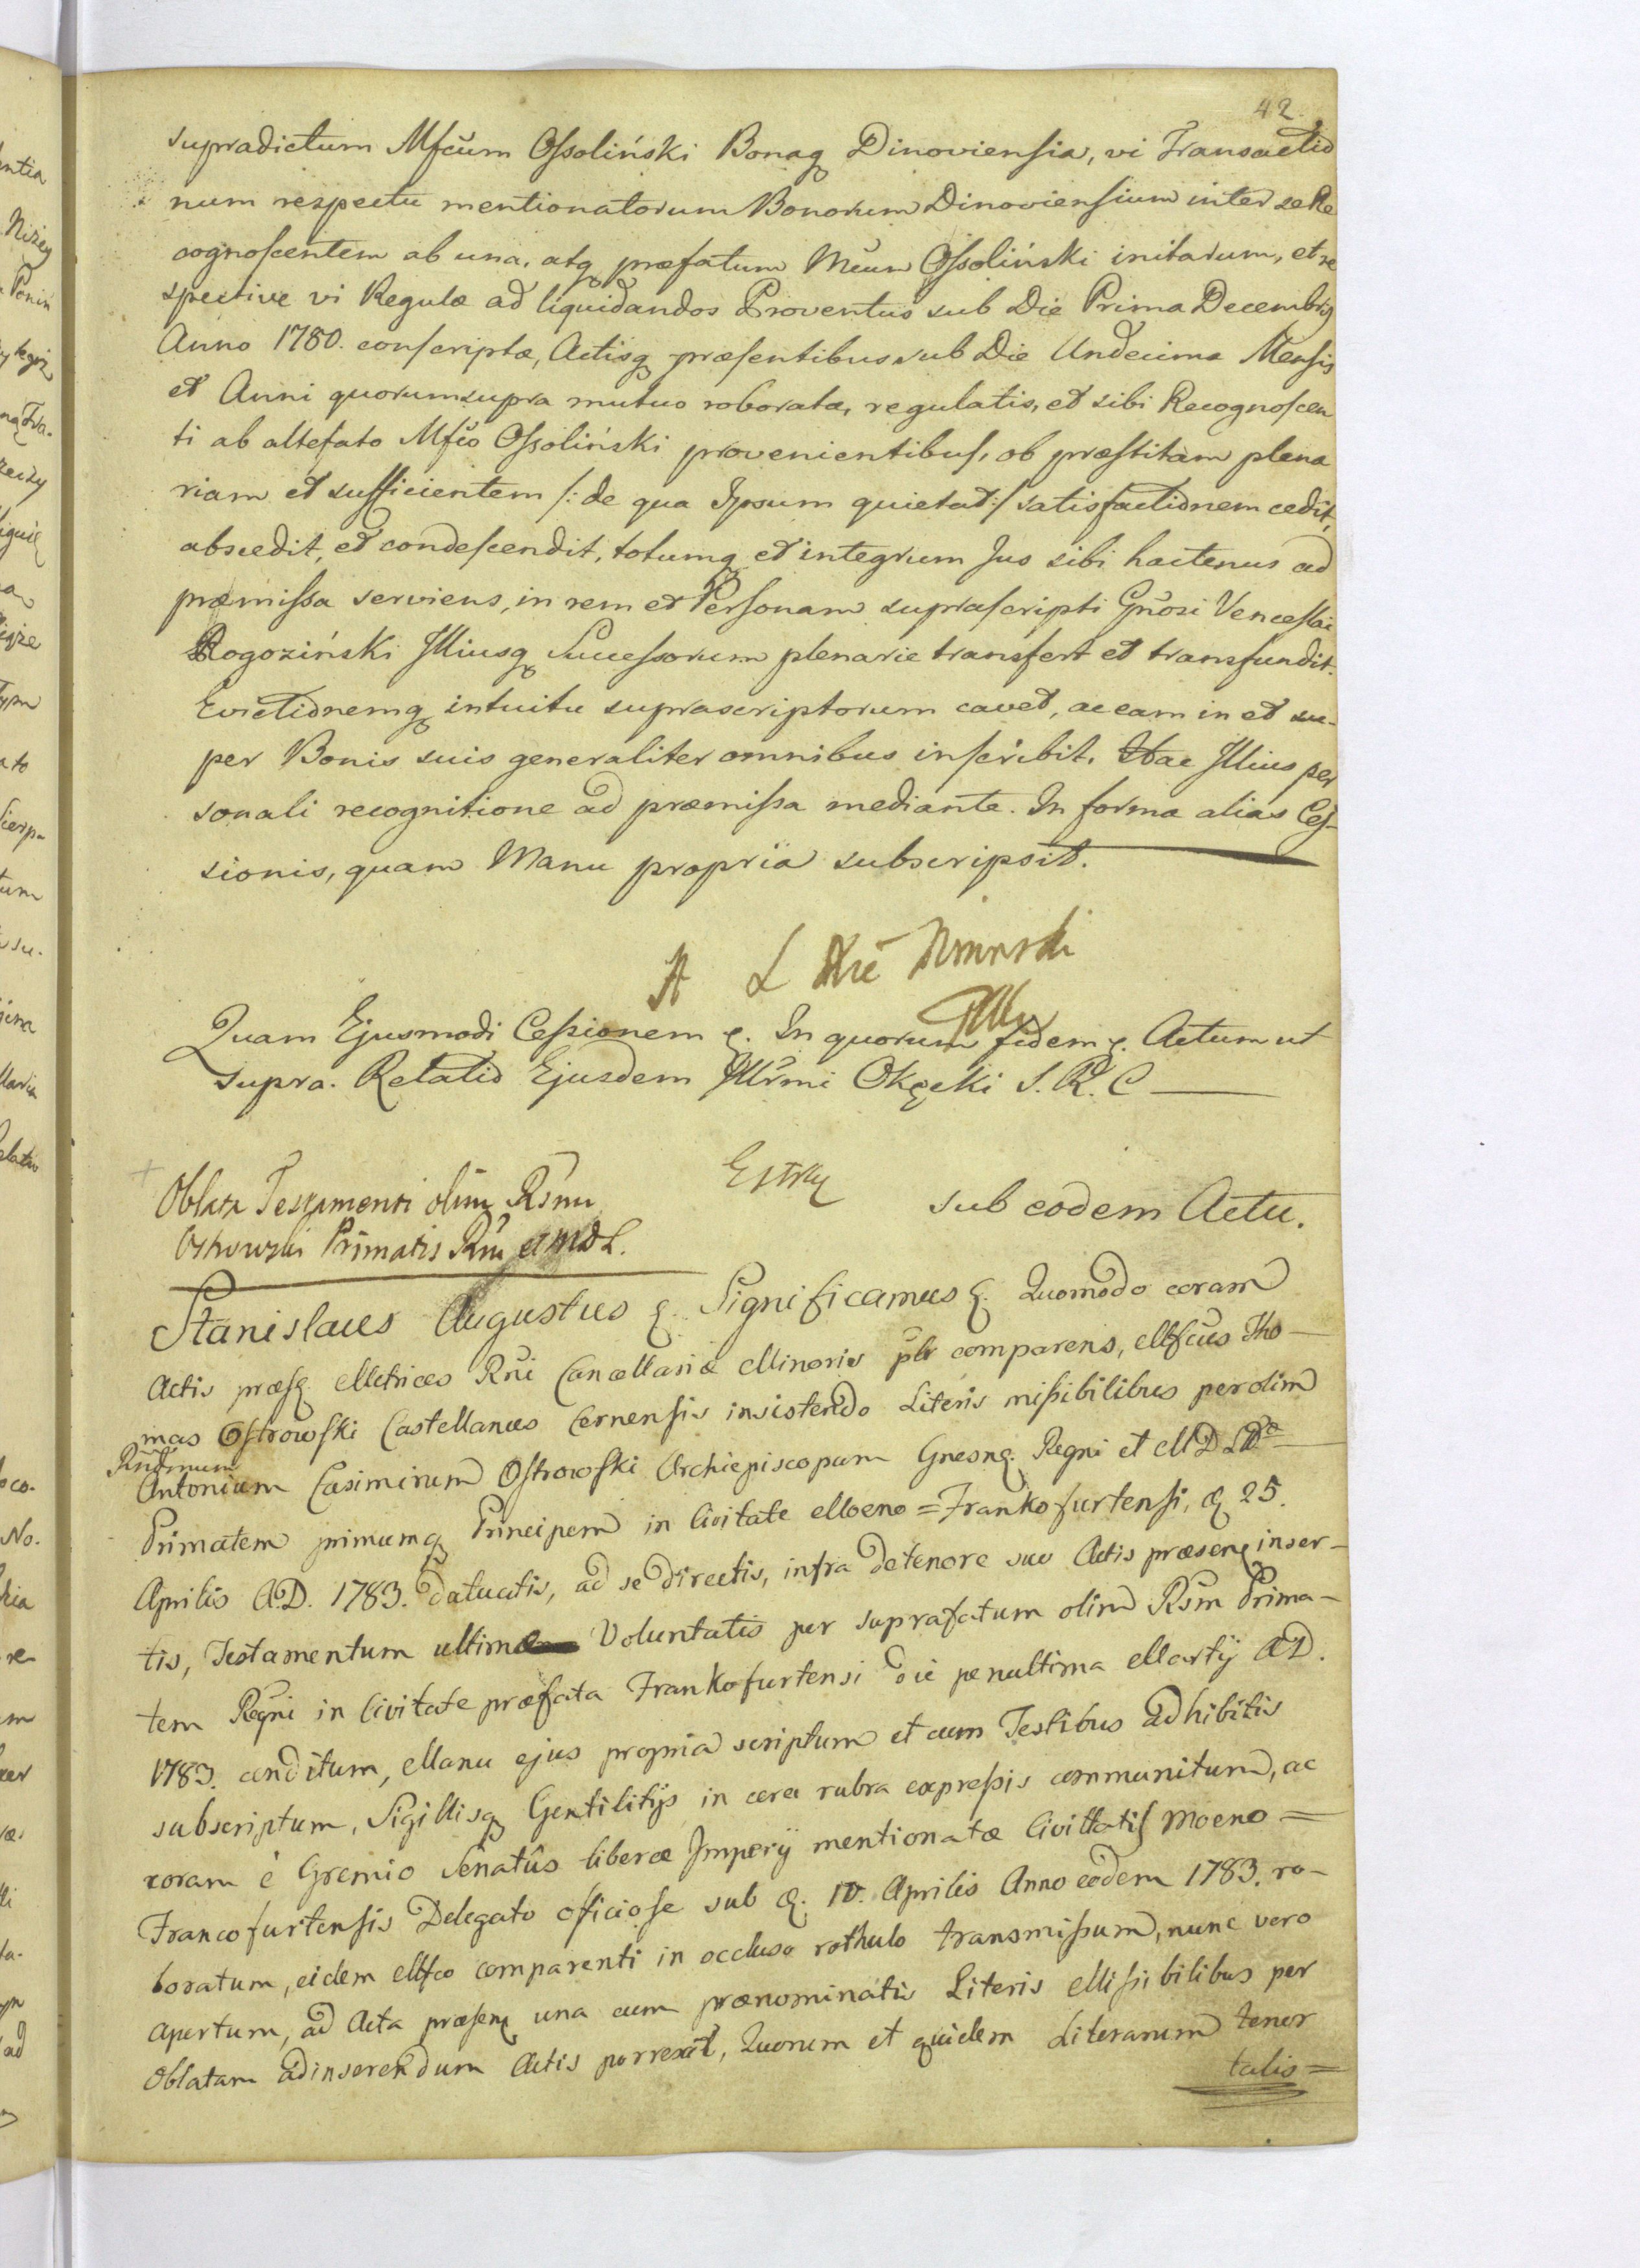 42
supradictum Mfcum Ossoliński Bonaq Dinoviensia, vi Transactio
num respectu mentionatorum Bonorum Dinoviensium inter se Re
cognoscentem ab una, atq præfatum Mcum Ossoliński initarum, et re
spective vi Regulæ ad liquidandos Proventus sub Die Prima Decembris
Anno 1780. conscriptæ, Actisq præsentibus sub Die Undecima Mensis
et Anni quorum supra mutuo roboratæ, regulatis, et sibi Recognoscen
ti ab altefato Mfco Ossoliński provenientibus, ob præstitam plena
riam et sufficientem /: de qua Ipsum quietat :/ satisfactionem cedit,
abscedit, et condescendit, totumq et integrum Jus sibi hactenus ad
præmissa serviens, in rem et Personam suprascripti Gnosi Venceslai
Rogoziński Illiusq Successorum plenarie transfert et transfundit.
Evictionemq intuitu suprascriptorum cavet, ac eam in et su-
per Bonis suis generaliter omnibus inscribit. Hac Illius per
sonali recognitione ad præmissa mediante. In forma alias Ces-
sionis, quam Manu propria subscripsit.
A L
Quam Ejusmodi Cessionem &. In quorum fidem &. Actum ut
supra. Relatio Ejusdem Illrmi Okęcki S. R. C
Oblata Testamenti olim Rsmi
Ostrowski Primatis Rni et M D L.
sub eodem Actu.
Stanislaus Augustus &. Significamus &. Quomodo coram
Actis præsq Metrices Rni Cancellariæ Minoris plr comparens, Mfcus Tho-
mas Ostrowski Castellanus Cernensis insistendo Literis missibilibus per olim
Rndmum
Antonium Casimirum Ostrowski Archiepiscopum Gnesnq. Regni et M D L
Primatem primumq Principem in Civitate Moeno = Frankofurtensi, d. 25.
Aprilis A.D. 1783. datuatis, ad se directis, infra de tenore suo Actis præsenq inser-
tis, Testamentum ultimæ Voluntatis per suprafatum olim Rsm Prima-
tem Regni in Civitate præfata Frankofurtensi die penultima Martij A D.
1783. conditum, Manu ejus propria scriptum et cum Testibus adhibitis
subscriptum, Sigillisq Gentilitijs in cera rubra expressis communitum, ac
coram è Gremio Senatûs liberæ Imperij mentionatæ Civitatis Moeno =
Francofurtensis Delegato officiose sub d. 10. Aprilis Anno eodem 1783. ro-
boratum, eidem Mfco comparenti in occluso rothulo transmissum, nunc vero
apertum, ad Acta præsenq una cum prænominatis Literis Missibilibus per
Oblatam ad inserendum Actis porrexit, Quorum et quidem Literarum tenor
talis =